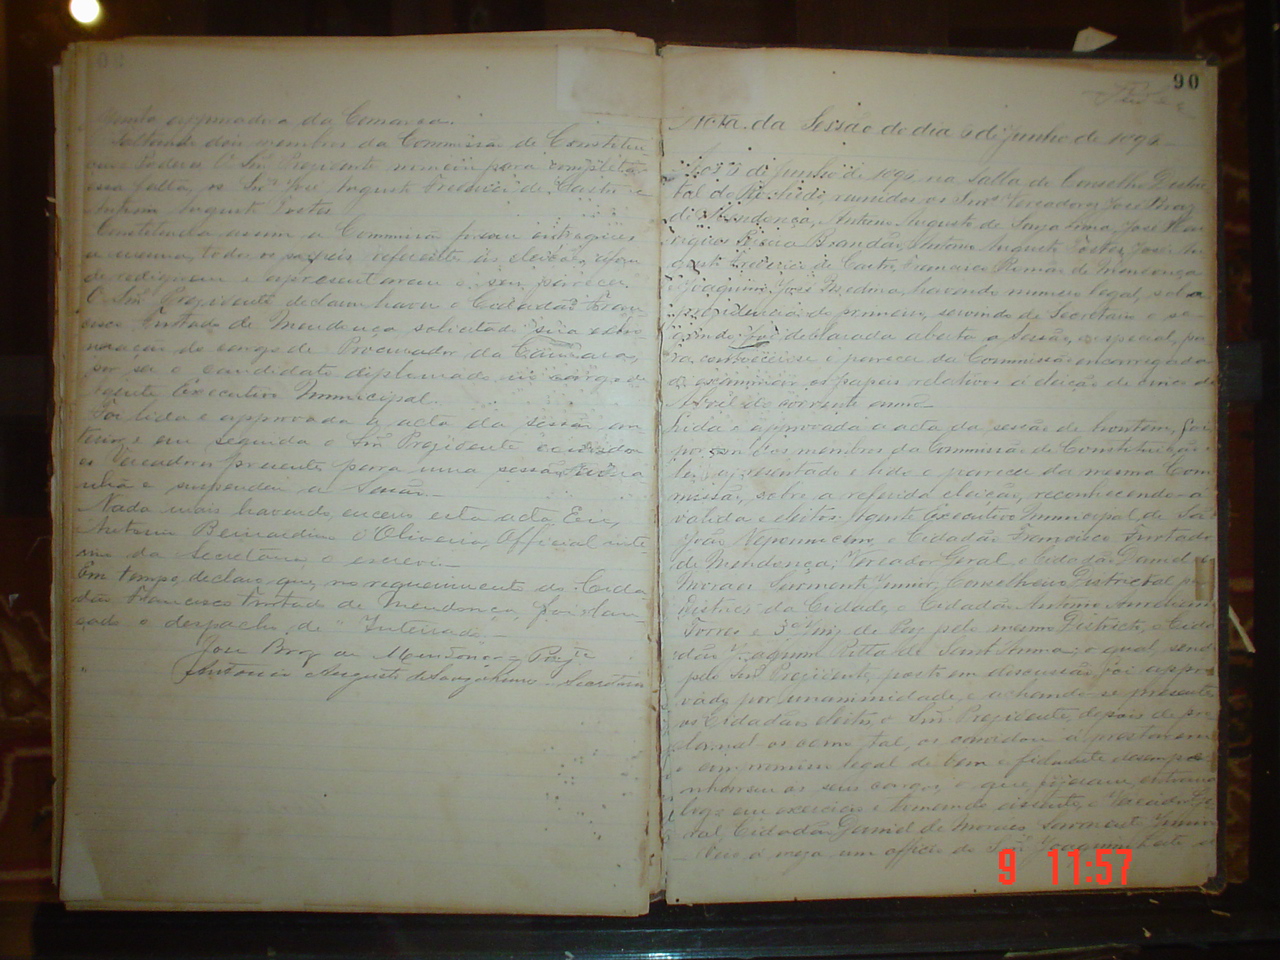 apuradora da Comarca.
Faltando dois membros da Commissão de Constitui-
ção e Poderes, o Snr. Presidente nomeou para completar
essa falta, os Snrs. José Augusto Frederico de Castro e
Antonio Augusto Torres.
Constituida assim a Commissão foram entregues
a mesma, todos os papeis referente ás eleições, afim
de redigirem e apresentarem o seu parecer.
O Snr. Presidente declarou haver o Cidadão Fran-
cisco Furtado de Mendonça solicitado sua exone-
ração do cargo de Procurador da Camara,
por ser o candidato diplomado ao cargo de
Agente Executivo Municipal.
Foi lida e approvada a acta da sessão an-
terior, e em seguida o Snr. Presidente convidou
os Vereadores presente para uma sessão
nhã e suspendeu a Sessão.
Nada mais havendo, encerro esta acta. Eu,
Antonio Bernardino d'Oliveira, Official inte-
rino da Secretaria, o escrevi.
Em tempo, declaro que, no requerimento do Cida-
dão Francisco Furtado de Mendonça, foi lan-
çado o despacho de "Inteirado."
Jose Braz de Mendonça - Prezte
Antonio Augusto de Souza Lima - Secretario
90
Acta da Sessão do dia 6 de Junho de 1896
Aos 6 de Junho de 1896 na salla do Conselho Distric-
tal do reunidos os Snrs. Vereadores José Braz
de Mendonça, Antonio Augusto de Souza Lima, José
Brandão, Antonio Augusto Torres, José Au-
gusto Frederico de Castro, Francisco de Mendonça
e Joaquim José Medina, havendo numero legal, sob a
presidencia do primeiro, servindo de Secretario o se-
gundo, foi declarada aberta a Sessão, especial, pa-
ra conhecer-se o parecer da Commissão encarregada
de examinar os papeis relativos á eleição de cinco de
Abril do corrente anno.
Lida e approvada a acta da sessão de hontem, foi
por um dos membros da Commissão de Constituição
apresentado e lido o parecer da mesma Com-
missão, sobre a referida eleição, reconhecendo-a
valida e eleitos Agente Executivo Municipal, de São
João Nepomuceno, o Cidadão Francisco Furtado
de Mendonça; Vereador Geral, o Cidadão Daniel de
Moraes Sarmento Junior, Conselheiro Districtal pelo
districto da Cidade, o Cidadão Antonio Aureliano
Torres e 3º Juiz de Paz pelo mesmo Districto, o Cida-
dão Joaquim Pitta de Sant'Anna; o qual sendo
pelo Snr. Presidente, posto em discussão, foi appro-
vado por unanimidade, e achando-se presentes
os Cidadãos eleitos, o Snr. Presidente, depois de pro-
clamal-os como tal, os convidou a prestarem
o compromisso legal de bem e fielmente desempe-
nharem os seus cargos, o que fizeram, entrando
logo em exercicio e tomando assento, o Vereador Ge-
ral, Cidadão Daniel de Moraes Sarmento Junior.
Veio á meza um officio do Snr. Joaquim
9 11:57